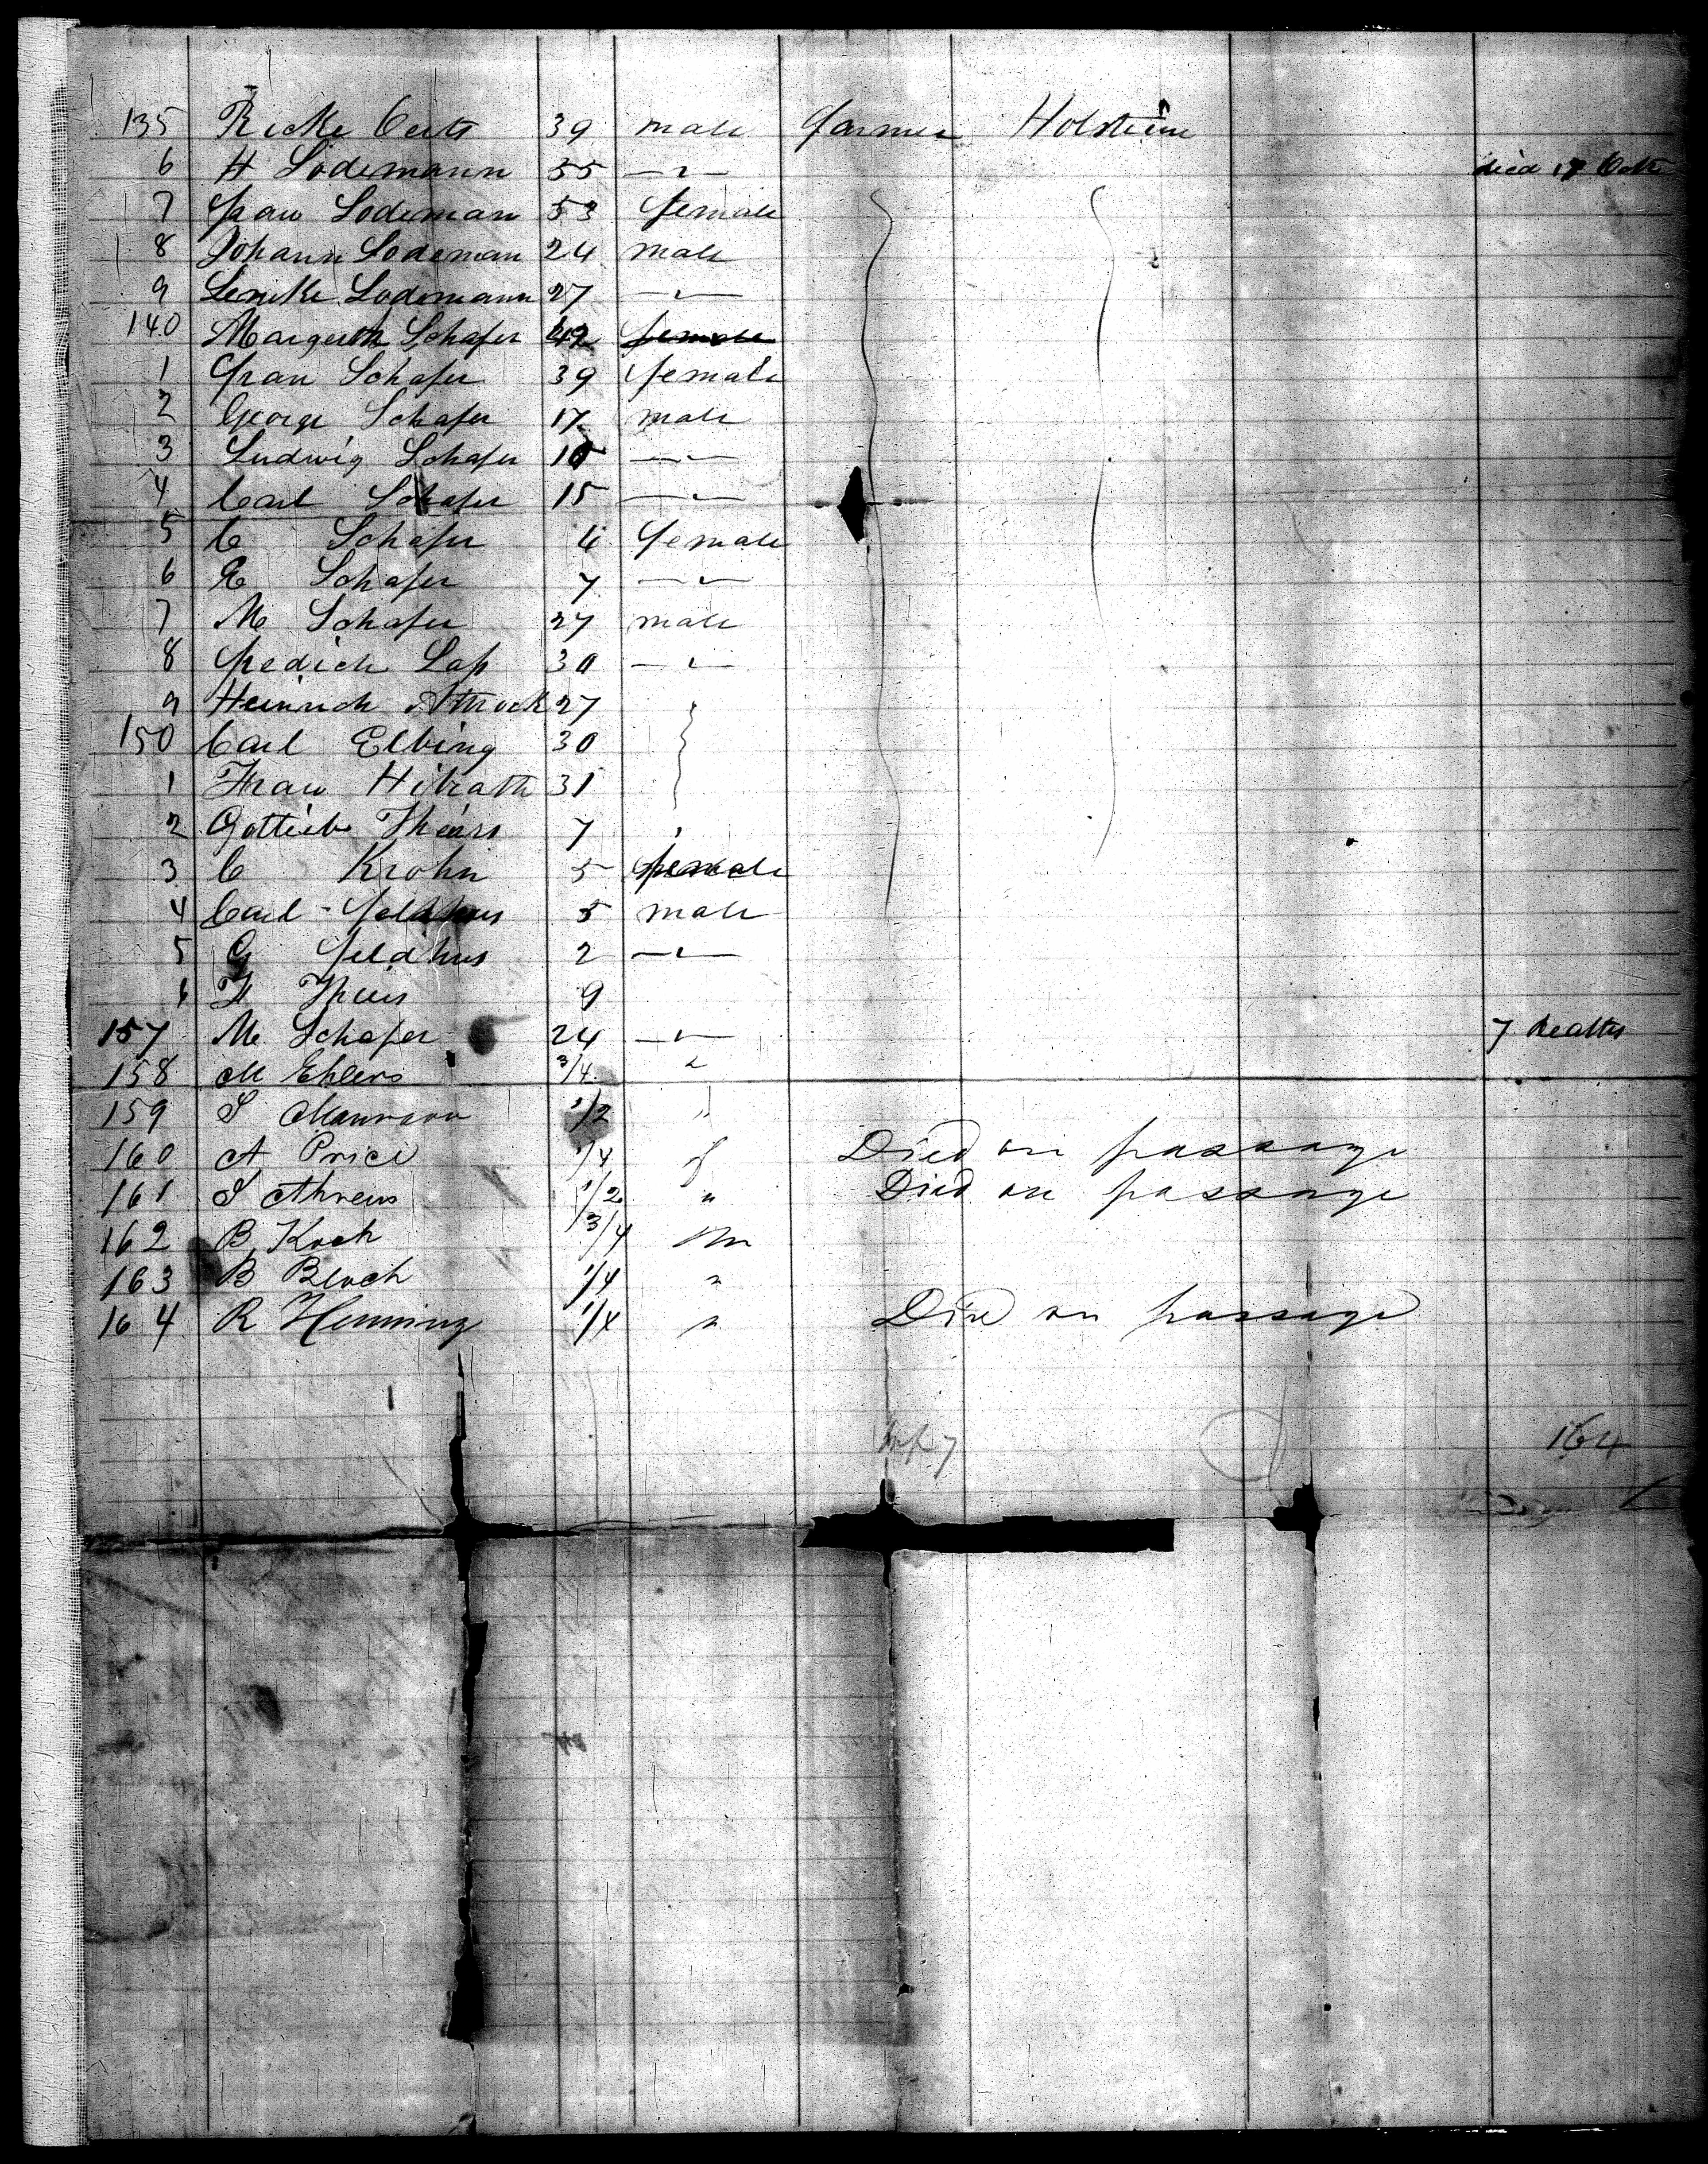 135 Ricke Certs 39 male Farmer Holsteine
6 H Lodemann 55 —〃— died 17 Octb
7 Frau Lodeman 53 female
8 Johann Lodeman 24 male
9 Lodemann 27 —〃—
140 Margreth Schafer 42 female
1 Frau Schafer 39 female
2 George Schafer 17 male
3 Ludwig Schafer 10 —〃—
4 Carl Schafer 15 —〃—
5 C Schafer 4 female
6 E Schafer 7 —〃—
7 M Schafer 27 male
8 Fredich Lass 30 —〃—
9 Heinrich 27
150 Carl Elbing 30
1 Frau Hilrath 31
2 Gottlieb Theirs 7
3 C Krohn 5 female
4 Carl Feldhus 5 male
5 G Feldhus 2 —〃—
6 H Theis 9
157 M Schafer 24 —〃— 7 deaths
158 M Ehlers 3/4 〃
159 S 1/2 〃
160 A Price 1/4 f Died on passage
161 S Ahrens 1/2 〃 Died on passage
162 B Koch 3/4 m
163 B Bloch 1/4 〃
164 R Henning 1/4 〃 Died on passage
164